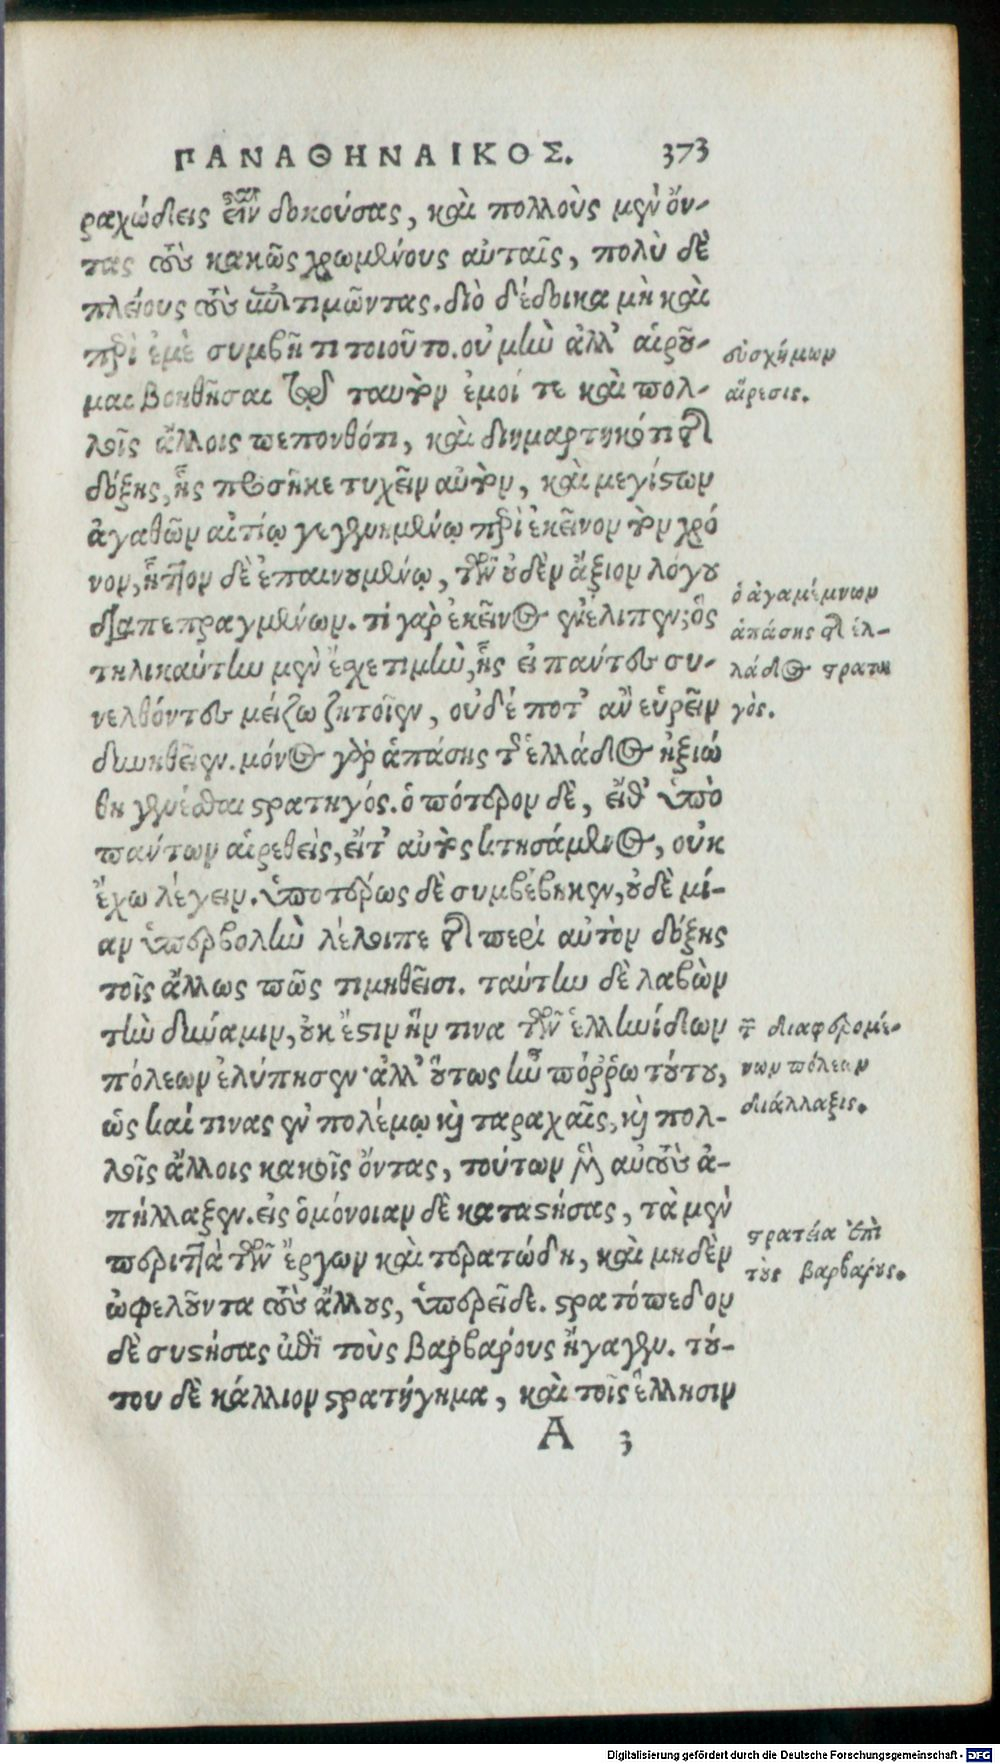 ΠΑΝΑΘΗΝΑΙΚΟΣ. 373
ραχώδεις εἶναι δοκούσας, καὶ πολλοὺς μὲν ὄν-
τας τοὺς κακῶς χρωμένους αὐταῖς, πολὺ δὲ
πλείους τοὺς ἐπιτιμῶντας. διὸ δέδοικα μὴ καὶ
περὶ ἐμὲ συμβῆ τι τοιοῦτο. οὐ μὴν ἀλλ' αἱροῦ-
μαι βοηθῆσαι τῷ ταυτὸν ἐμοί τε καὶ πολ-
λοῖς ἄλλοις πεπονθότι, καὶ διημαρτηκότι τῆς
δόξης, ἧς προσῆκε τυχεῖν αὐτὸν, καὶ μεγίστων
ἀγαθῶν αἰτίῳ γεγενημένῳ περὶ ἐκεῖνον τὸν χρό
νον, ἧττον δὲ ἐπαινουμένῳ, τῶν οὐδὲν ἄξιον λόγου
διαπεπραγμένων. τί γὰρ ἐκεῖνος ἐνέλιπεν; ὃς
τηλικαύτην μὲν ἔσχε τιμὴν, ἧς εἰ πάντες συ-
νελθόντες μείζω ζητοῖεν, οὐδέ ποτ' ἂν εὑρεῖν
δυνηθεῖεν. μόνος γὰρ ἁπάσης τῆς ἑλλάδος ἠξιώ
θη γενέσθαι στρατηγός. ὁπότερον δὲ, εἴθ' ὑπὸ
πάντων αἱρεθεὶς, εἴτ' αὐτὸς κτησάμενος, οὐκ
ἔχω λέγειν. ὁποτέρως δὲ συμβέβηκεν, οὐδὲ μί-
αν ὑπερβολὴν λέλοιπε τῆς περὶ αὐτὸν δόξης
τοῖς ἄλλως πως τιμηθεῖσι. ταύτην δὲ λαβὼν
τὴν δύναμιν, οὐκ ἔστιν ἥν τινα τῶν ἑλληνίδων
πόλεων ἐλύπησεν· ἀλλ' οὕτως ἦν πόῤῥω τούτου,
ὥς καί τινας ἐν πολέμῳ καὶ ταραχαῖς, καὶ πολ-
λοῖς ἄλλοις κακοῖς ὄντας, τούτων μὲν αὐτοὺς ἀ-
πήλλαξεν. εἰς ὁμόνοιαν δὲ καταστήσας, τὰ μὲν
περιττὰ τῶν ἔργων καὶ τερατώδη, καὶ μηδὲν
ὠφελοῦντα τοὺς ἄλλους, ὑπερεῖδε. στρατόπεδον
δὲ συστήσας ἐπὶ τοὺς βαρβάρους ἤγαγεν. τού-
του δὲ κάλλιον στρατήγημα, καὶ τοῖς ἕλλησιν
Α 3
δυσχήμων
αἵρεσις.
ὁ ἀγαμέμνων
ἁπάσης τῆς ἑλ-
λάδος στρατη
γὸς.
τ̄ διαφερομέ-
νων πόλεων
διάλλαξις.
στρατεία ἐπὶ
τοὺς βαρβάρους.
Digitalisierung gefördert durch die Deutsche Forschungsgemeinschaft - DFG